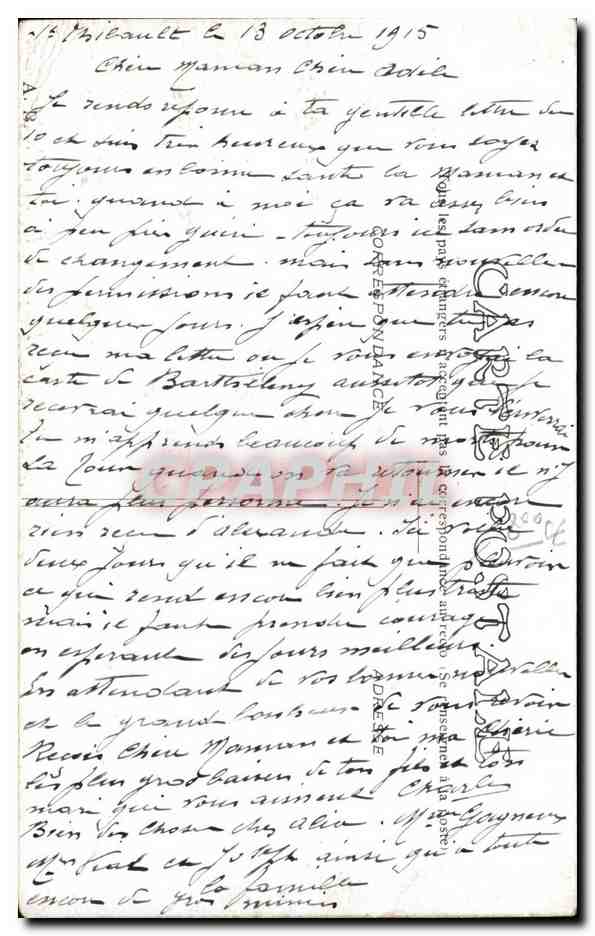 St Thibault le 13 octobre 1915
Chère Maman Chère Adèle
Je rends réponse à ta gentille lettre du
10 et suis très heureux que vous soyez
toujours en bonne santé la Maman et
toi. quand à moi ça va assez bien
à peu près guéri - toujours ici sans ordre
de changement. mais sans nouvelles
des permissions il faut attendre encore
quelques jours. J'espère que tu as
reçu ma lettre ou je vous envoyai la
carte de Barthélemy aussitot que je
recevrai quelque chose je vous l'enverrai
Tu m'apprends beaucoup de morts pour
La Tour quand on va retourner il n'y
aura plus personne. Je n'ai encore
rien reçu d'alexandre.
deux jours qu'il ne fait que pleuvoir
ce qui rend encore bien plus triste
mais il faut prendre courage
en espérant des jours meilleurs.
En attendant de vos bonnes nouvelles
et le grand bonheur de vous revoir
Reçois Chère Maman et toi ma chérie
les plus gros baisers de ton fils et ton
mari qui vous aiment Charles
Bien des choses chez alix. Mme Gagneux
Mme Vial et Joseph ainsi qu'à toute
la famille
encore de gros mimis
CARTE POSTALE
Tous les pays étrangers n'acceptent pas la correspondance au recto (Se renseigner à la poste)
CORRESPONDANCE
ADRESSE
CRAPHIL